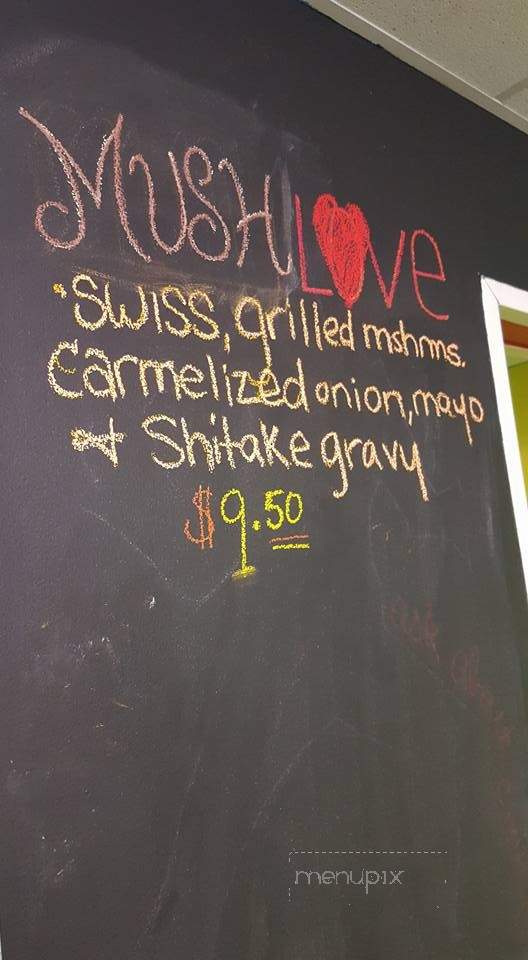 MUSH LOVE
• SWISS, grilled mshrms.
Carmelized onion, mayo
+ Shitake gravy
$9.50
menupix